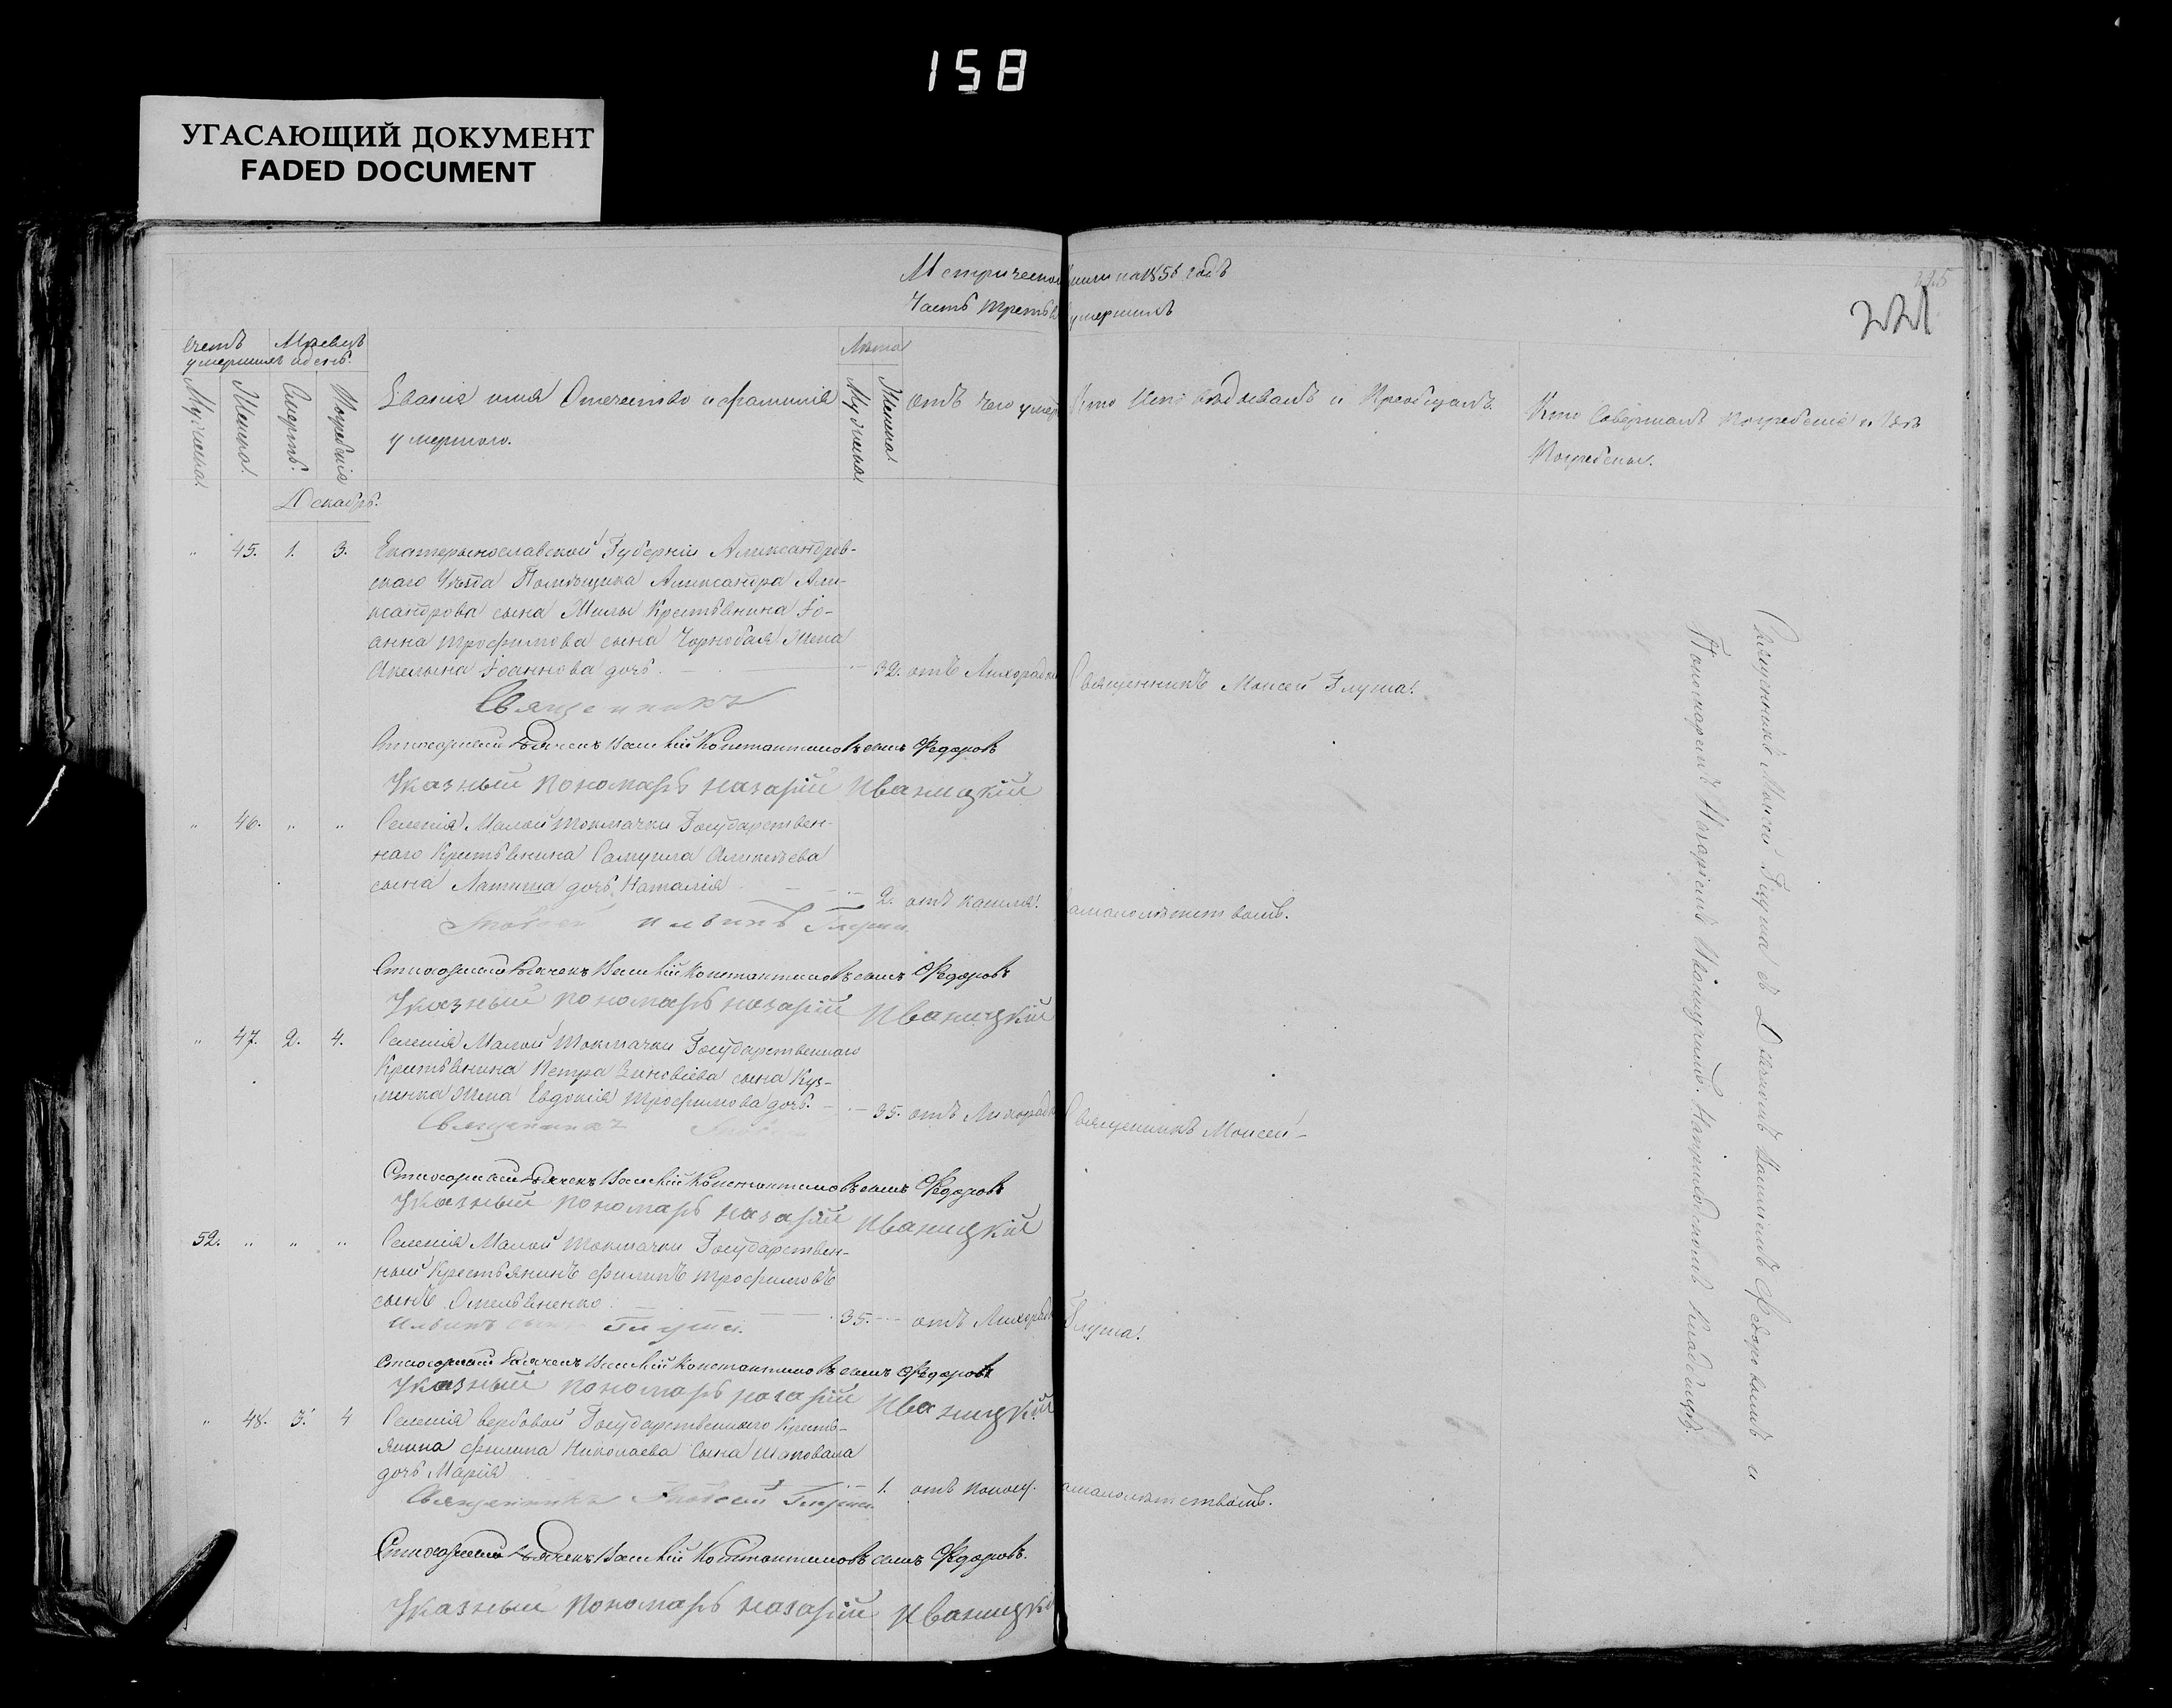 158
УГАСАЮЩИЙ ДОКУМЕНТ
FADED DOCUMENT
Метрической книги на 1856 годъ
Часть третья умершихъ
225
221
Счетъ умершихъ
Мужеска.
Женска.
Месяцъ и день.
Смерть.
Погребенія
Званія имя Отечество и фамилія
умершаго.
Лѣта
Мужеска
Женска
отъ чего умеръ
Кто исповѣдывалъ и Пріобщалъ.
Кто Совершалъ погребеніе и гдѣ
Погребены.
Декабрь.
„ 45. 1. 3. Екатерынославской Губерніи Александров-
скаго Уѣзда Помѣщика Александра Але-
ксандрова сына Милы Крестьянина Іо-
анна Трофимова сына Чорнобая Жена
Акелына Іоаннова дочь. 32. отъ Лихорадки Священникъ Моисей Глуша.
Священникъ
Стихорный Дьячекъ Василій Константиновъ сынъ Федоровъ
Указный пономарь назарій Иваницкій
„ 46. „ „ Селенія Малой Токмачки Государствен-
наго Крестьянина Самуила Алексѣева
сына Латыша дочь Наталія 2. отъ кашля. замалолѣтствомъ.
Моисей Ильинъ Глуша
Стихорный Дьячекъ Василій Константиновъ сынъ Федоровъ
Указный пономарь назарій Иваницкій
„ 47. 2. 4. Селенія Малой Токмачки Государственнаго
Крестьянина Петра Зиновіева сына Куз-
менка Жена Евдокія Трофимова дочь. 35. отъ Лихорадки Священникъ Моисей
Священникъ
Стихорный Дьячекъ Василій Константиновъ сынъ Федоровъ
Указный пономарь назарій Иваницкій
52. „ „ „ Селенія Малой Токмачки Государствен-
ный Крестьянинъ филипъ Трофимовъ
сынъ Омельяненко 35. отъ Лихорадки Глуша.
Ильинъ сынъ Глуша.
Стихорный Дьячекъ Василій Константиновъ сынъ Федоровъ
Указный пономарь назарій Иваницкій
„ 48. 3. 4 Селенія Вербовой Государственнаго Кресть-
янина филипа Николаева Сына Шаповала
дочь Марія 1. отъ поноса. замалолѣтствомъ.
Священникъ Моисей Глуша
Стихорный Дьячекъ Василій Константиновъ сынъ Федоровъ.
Указный пономарь назарій Иваницкій
Священникъ Моисей Глуша съ Дьячкомъ Василіемъ Федоровымъ и
Пономаремъ Назаріемъ Иваницкимъ. На приходскомъ кладбищѣ.